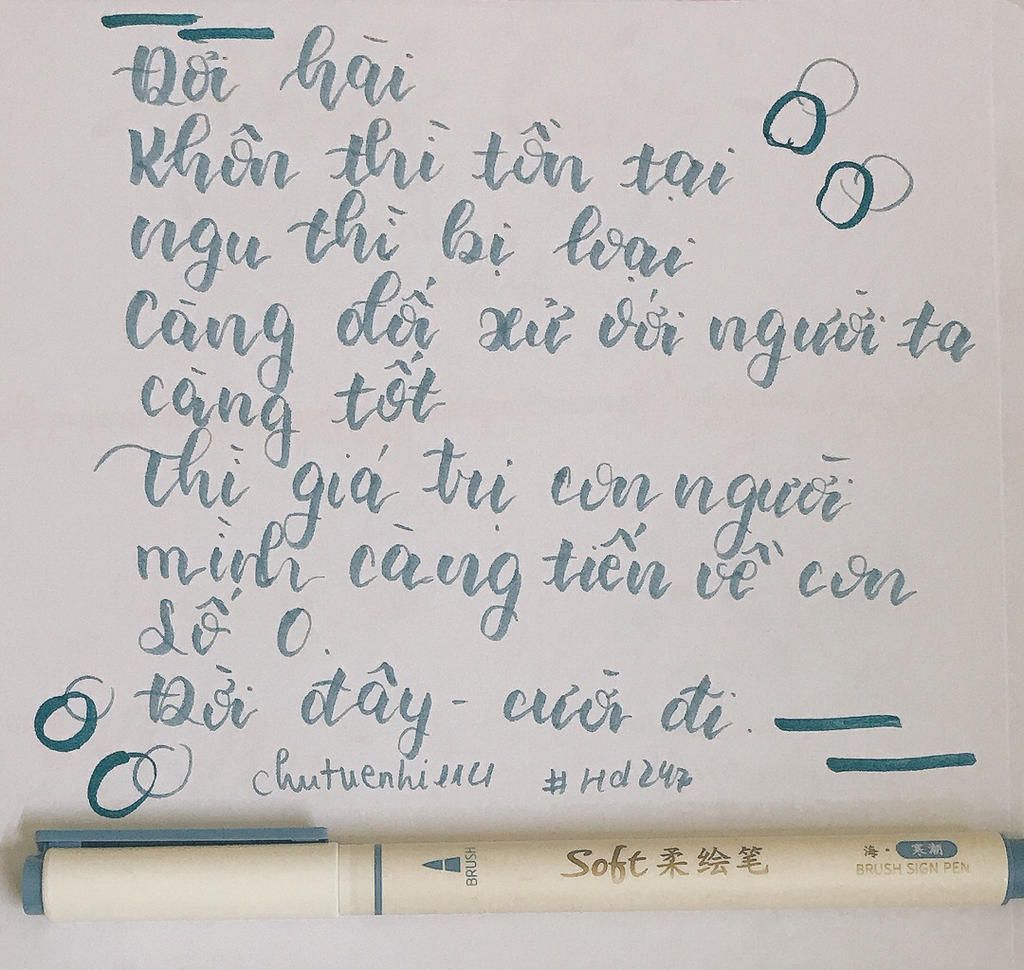 Đời hài
Khôn thì tồn tại
ngu thì bị loại
Càng đối xử với người ta
càng tốt
Thì giá trị con người
mình càng tiến về con
Số 0.
Đời đấy - cười đi.
#Hd247
BRUSH
Soft 柔绘笔
海·寒潮
BRUSH SIGN PEN